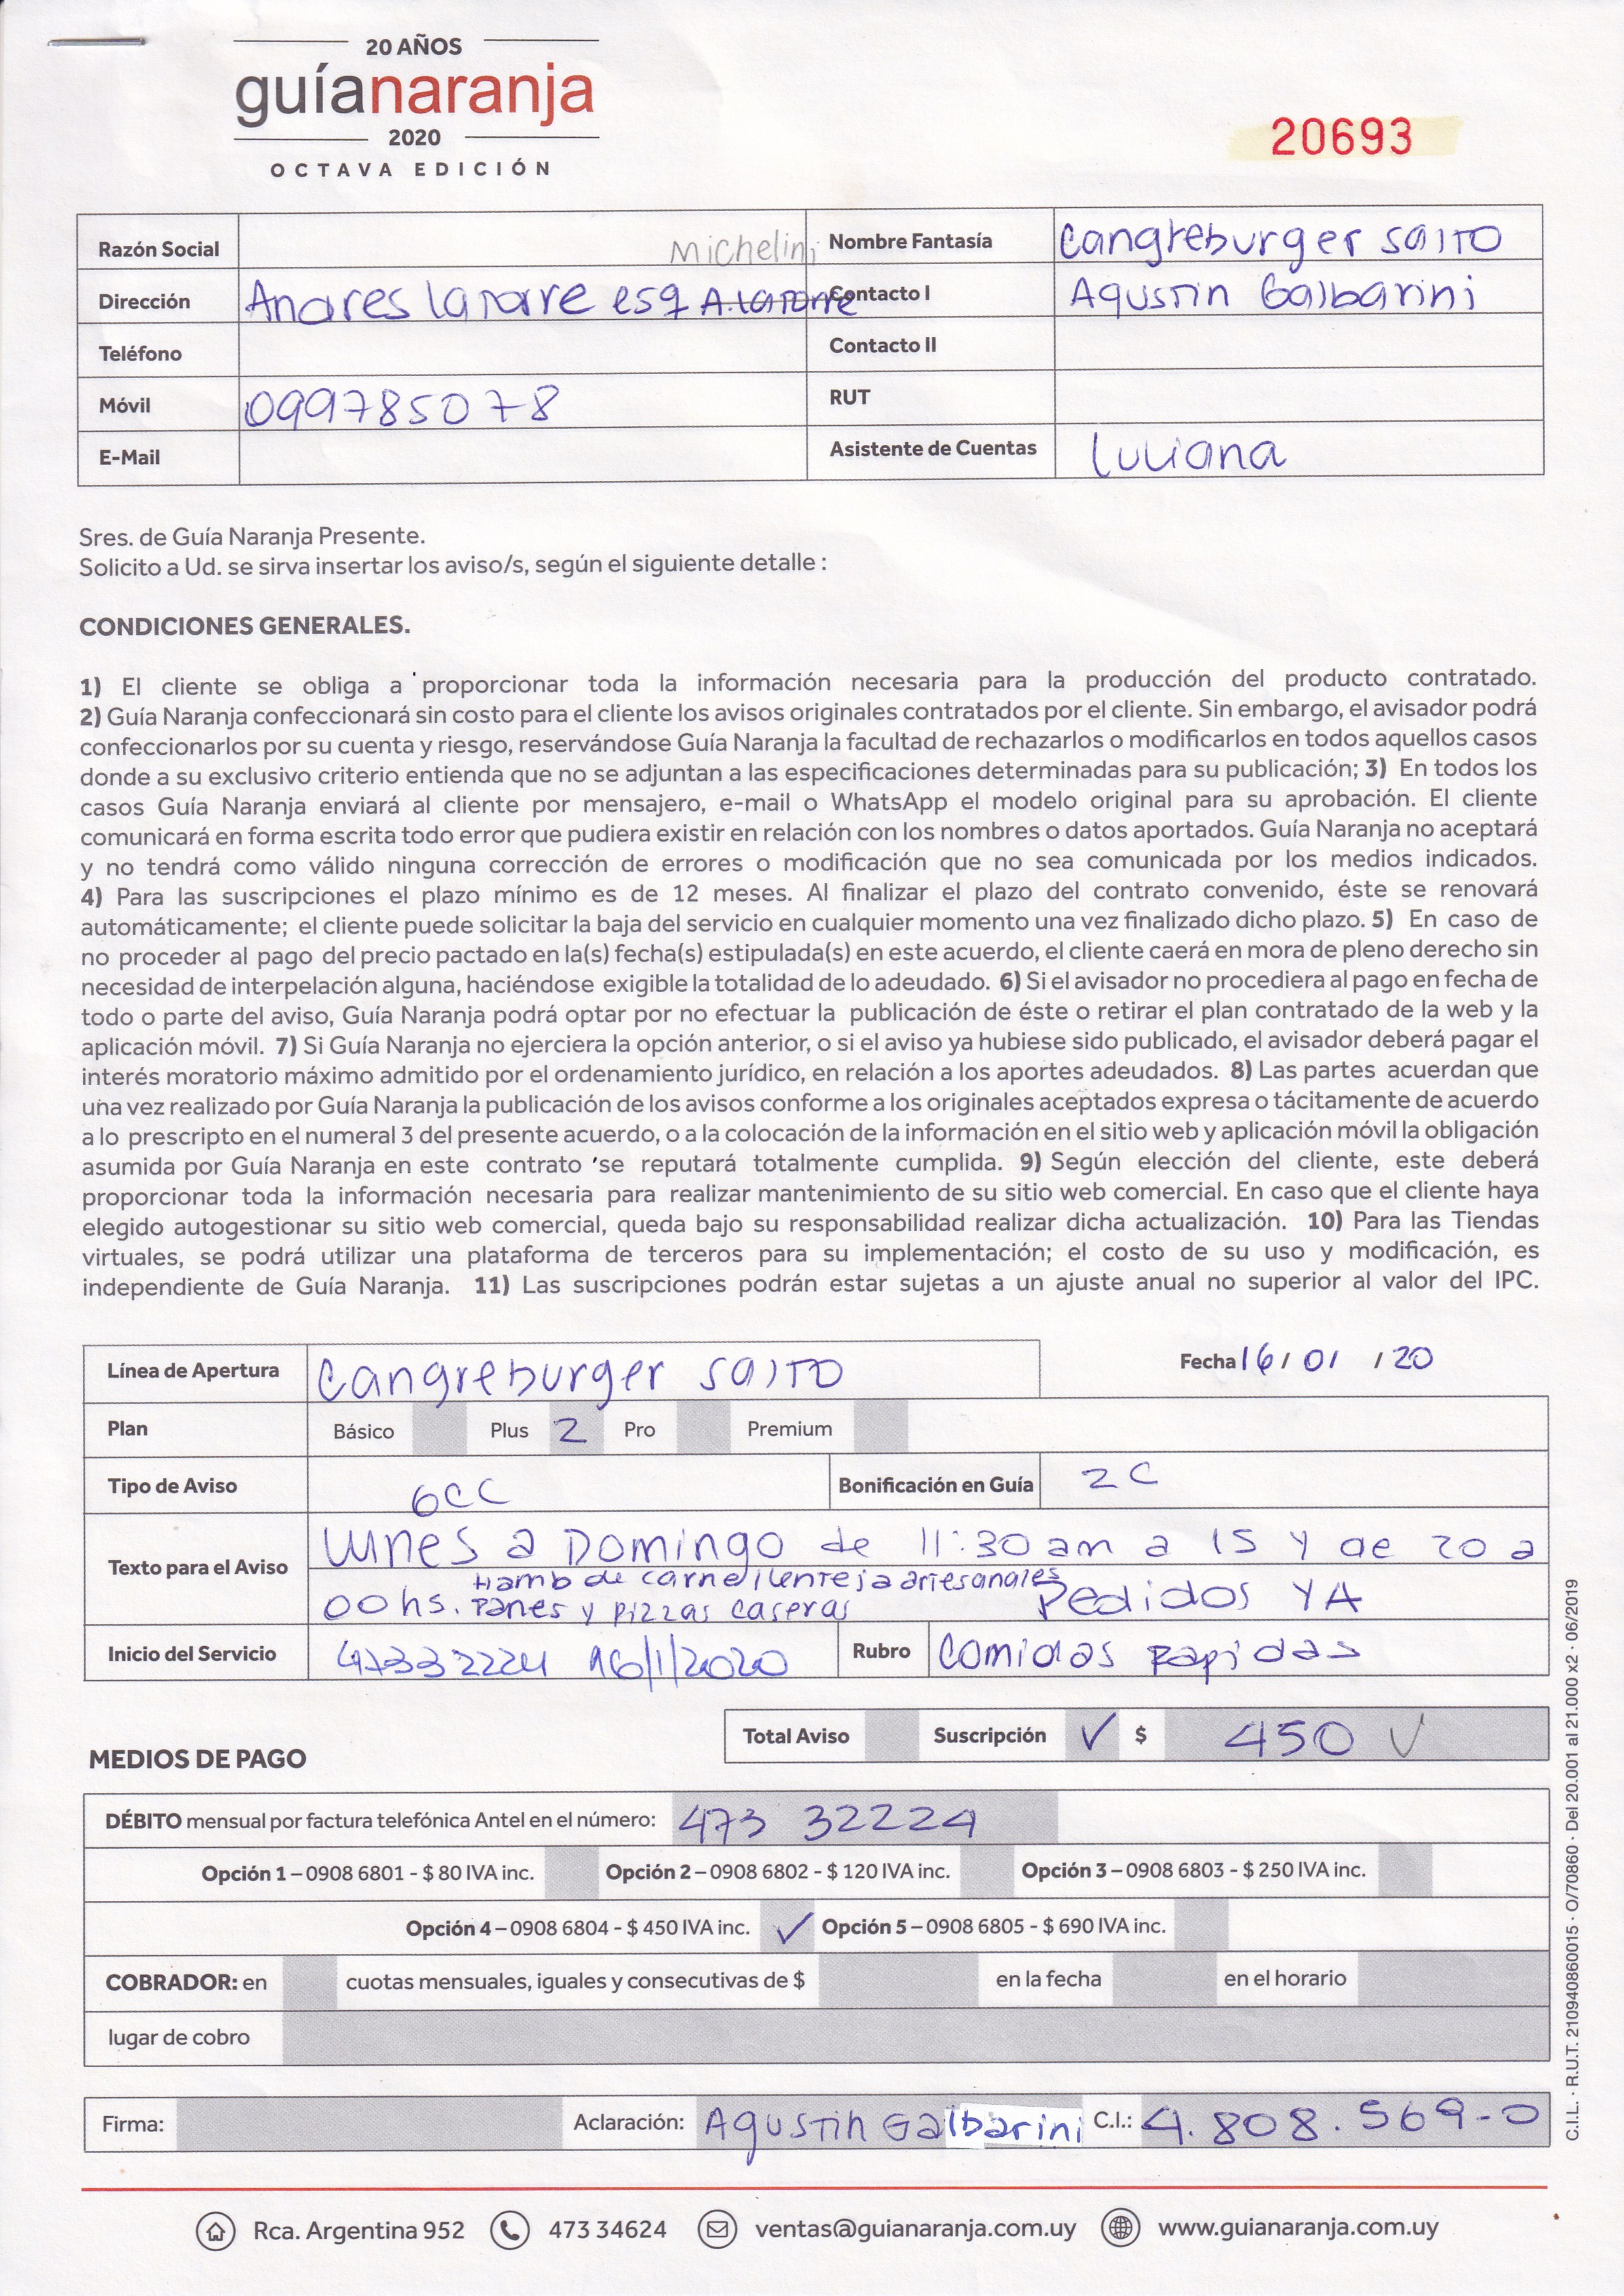 20 AÑOS
guíanaranja
2020
OCTAVA EDICIÓN
20693
Razón Social Michelini Nombre Fantasía Cangreburger Salto
Dirección Andres Latorre esq A. Latorre Contacto I Agustin Galbarini
Teléfono Contacto II
Móvil 099785078 RUT
E-Mail Asistente de Cuentas Luliana
Sres. de Guía Naranja Presente.
Solicito a Ud. se sirva insertar los aviso/s, según el siguiente detalle :
CONDICIONES GENERALES.
1) El cliente se obliga a proporcionar toda la información necesaria para la producción del producto contratado.
2) Guía Naranja confeccionará sin costo para el cliente los avisos originales contratados por el cliente. Sin embargo, el avisador podrá
confeccionarlos por su cuenta y riesgo, reservándose Guía Naranja la facultad de rechazarlos o modificarlos en todos aquellos casos
donde a su exclusivo criterio entienda que no se adjuntan a las especificaciones determinadas para su publicación; 3) En todos los
casos Guía Naranja enviará al cliente por mensajero, e-mail o WhatsApp el modelo original para su aprobación. El cliente
comunicará en forma escrita todo error que pudiera existir en relación con los nombres o datos aportados. Guía Naranja no aceptará
y no tendrá como válido ninguna corrección de errores o modificación que no sea comunicada por los medios indicados.
4) Para las suscripciones el plazo mínimo es de 12 meses. Al finalizar el plazo del contrato convenido, éste se renovará
automáticamente; el cliente puede solicitar la baja del servicio en cualquier momento una vez finalizado dicho plazo. 5) En caso de
no proceder al pago del precio pactado en la(s) fecha(s) estipulada(s) en este acuerdo, el cliente caerá en mora de pleno derecho sin
necesidad de interpelación alguna, haciéndose exigible la totalidad de lo adeudado. 6) Si el avisador no procediera al pago en fecha de
todo o parte del aviso, Guía Naranja podrá optar por no efectuar la publicación de éste o retirar el plan contratado de la web y la
aplicación móvil. 7) Si Guía Naranja no ejerciera la opción anterior, o si el aviso ya hubiese sido publicado, el avisador deberá pagar el
interés moratorio máximo admitido por el ordenamiento jurídico, en relación a los aportes adeudados. 8) Las partes acuerdan que
una vez realizado por Guía Naranja la publicación de los avisos conforme a los originales aceptados expresa o tácitamente de acuerdo
a lo prescripto en el numeral 3 del presente acuerdo, o a la colocación de la información en el sitio web y aplicación móvil la obligación
asumida por Guía Naranja en este contrato se reputará totalmente cumplida. 9) Según elección del cliente, este deberá
proporcionar toda la información necesaria para realizar mantenimiento de su sitio web comercial. En caso que el cliente haya
elegido autogestionar su sitio web comercial, queda bajo su responsabilidad realizar dicha actualización. 10) Para las Tiendas
virtuales, se podrá utilizar una plataforma de terceros para su implementación; el costo de su uso y modificación, es
independiente de Guía Naranja. 11) Las suscripciones podrán estar sujetas a un ajuste anual no superior al valor del IPC.
Línea de Apertura Cangreburger Salto Fecha 16 / 01 / 20
Plan Básico Plus 2 Pro Premium
Tipo de Aviso 6CC Bonificación en Guía 2C
Texto para el Aviso Lunes a Domingo de 11:30 am a 15 y de 20 a
Hamb de carne, lenteja artesanales
00 hs. Panes y pizzas caseras Pedidos YA
Inicio del Servicio 47332224 16/1/2020 Rubro Comidas Rapidas
Total Aviso Suscripción ✓ $ 450 ✓
MEDIOS DE PAGO
DÉBITO mensual por factura telefónica Antel en el número: 473 32224
Opción 1 – 0908 6801 - $ 80 IVA inc. Opción 2 – 0908 6802 - $ 120 IVA inc. Opción 3 – 0908 6803 - $ 250 IVA inc.
Opción 4 – 0908 6804 - $ 450 IVA inc. ✓ Opción 5 – 0908 6805 - $ 690 IVA inc.
COBRADOR: en cuotas mensuales, iguales y consecutivas de $ en la fecha en el horario
lugar de cobro
Firma: Aclaración: Agustin Galbarini C.I.: 4.808.569-0
Rca. Argentina 952 473 34624 ventas@guianaranja.com.uy www.guianaranja.com.uy
C.I.L. · R.U.T. 210940860015 · O/70860 · Del 20.001 al 21.000 x2 · 06/2019